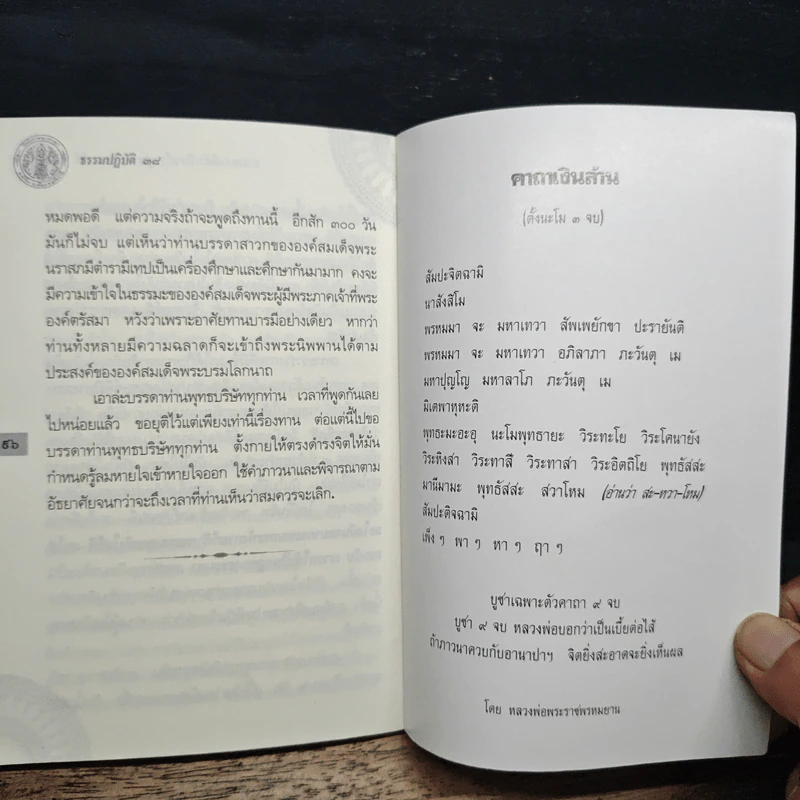 ธรรมปฏิบัติ ๓๘
หมดพอดี แต่ความจริงถ้าจะพูดถึงทานนี้ อีกสัก ๓๐๐ วัน
มันก็ไม่จบ แต่เห็นว่าท่านบรรดาสาวกขององค์สมเด็จพระ
นราสภมีตำรามีเทปเป็นเครื่องศึกษาและศึกษากันมามาก คงจะ
มีความเข้าใจในธรรมะขององค์สมเด็จพระผู้มีพระภาคเจ้าที่พระ
องค์ตรัสมา หวังว่าเพราะอาศัยทานบารมีอย่างเดียว หากว่า
ท่านทั้งหลายมีความฉลาดก็จะเข้าถึงพระนิพพานได้ตาม
ประสงค์ขององค์สมเด็จพระบรมโลกนาถ
เอาล่ะบรรดาท่านพุทธบริษัททุกท่าน เวลาที่พูดกันเลย
ไปหน่อยแล้ว ขอยุติไว้แต่เพียงเท่านี้เรื่องทาน ต่อแต่นี้ไปขอ
บรรดาท่านพุทธบริษัททุกท่าน ตั้งกายให้ตรงดำรงจิตให้มั่น
กำหนดรู้ลมหายใจเข้าหายใจออก ใช้คำภาวนาและพิจารณาตาม
อัธยาศัยจนกว่าจะถึงเวลาที่ท่านเห็นว่าสมควรจะเลิก.
คาถาเงินล้าน
(ตั้งนะโม ๓ จบ)
สัมปะจิตฉามิ
นาสังสิโม
พรหมมา จะ มหาเทวา สัพเพยักขา ปะรายันติ
พรหมมา จะ มหาเทวา อภิลาภา ภะวันตุ เม
มหาปุญโญ มหาลาโภ ภะวันตุ เม
มิเตพาหุหะติ
พุทธะมะอะอุ นะโมพุทธายะ วิระทะโย วิระโคนายัง
วิระหิงสา วิระทาสี วิระทาสา วิระอิตถิโย พุทธัสสะ
มานีมามะ พุทธัสสะ สวาโหม (อ่านว่า สะ-หวา-โหม)
สัมปะติจฉามิ
เพ็ง ๆ พา ๆ หา ๆ ฤา ๆ
บูชาเฉพาะตัวคาถา ๙ จบ
บูชา ๙ จบ หลวงพ่อบอกว่าเป็นเบี้ยต่อไส้
ถ้าภาวนาควบกับอานาปาฯ จิตยิ่งสะอาดจะยิ่งเห็นผล
โดย หลวงพ่อพระราชพรหมยาน